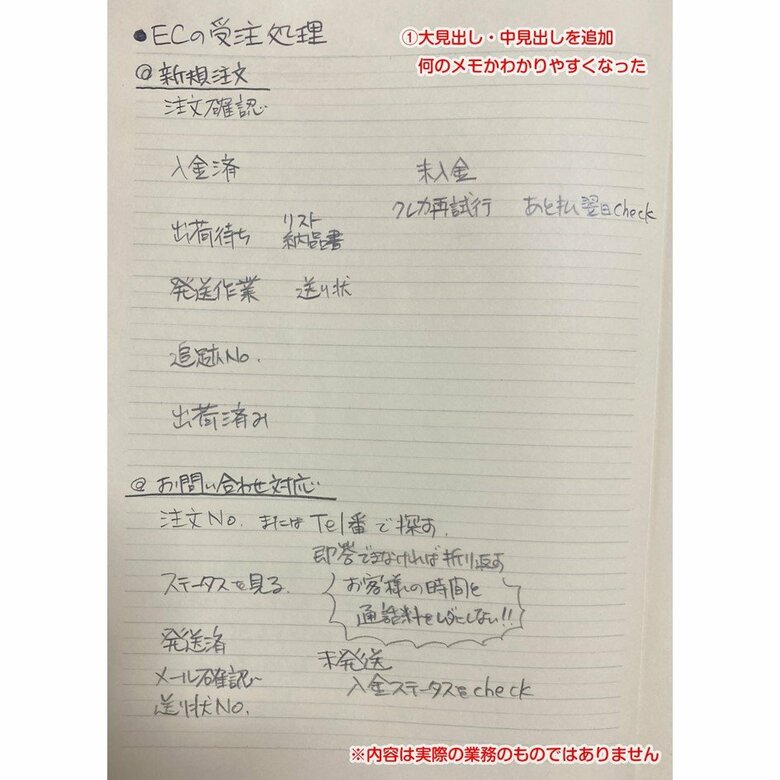 ●ECの受注処理
①大見出し・中見出しを追加
何のメモかわかりやすくなった
@ 新規注文
注文確認
入金済 未入金
クレカ再試行 あと払い翌日check
リスト
出荷待ち 納品書
発送作業 送り状
追跡No.
出荷済み
@ お問い合わせ対応
注文No. またはTel番で探す.
即答できなければ折り返す
ステータスを見る. お客様の時間と
通話料をムダにしない!!
発送済 未発送
メール確認 入金ステータスをcheck
送り状No.
※内容は実際の業務のものではありません